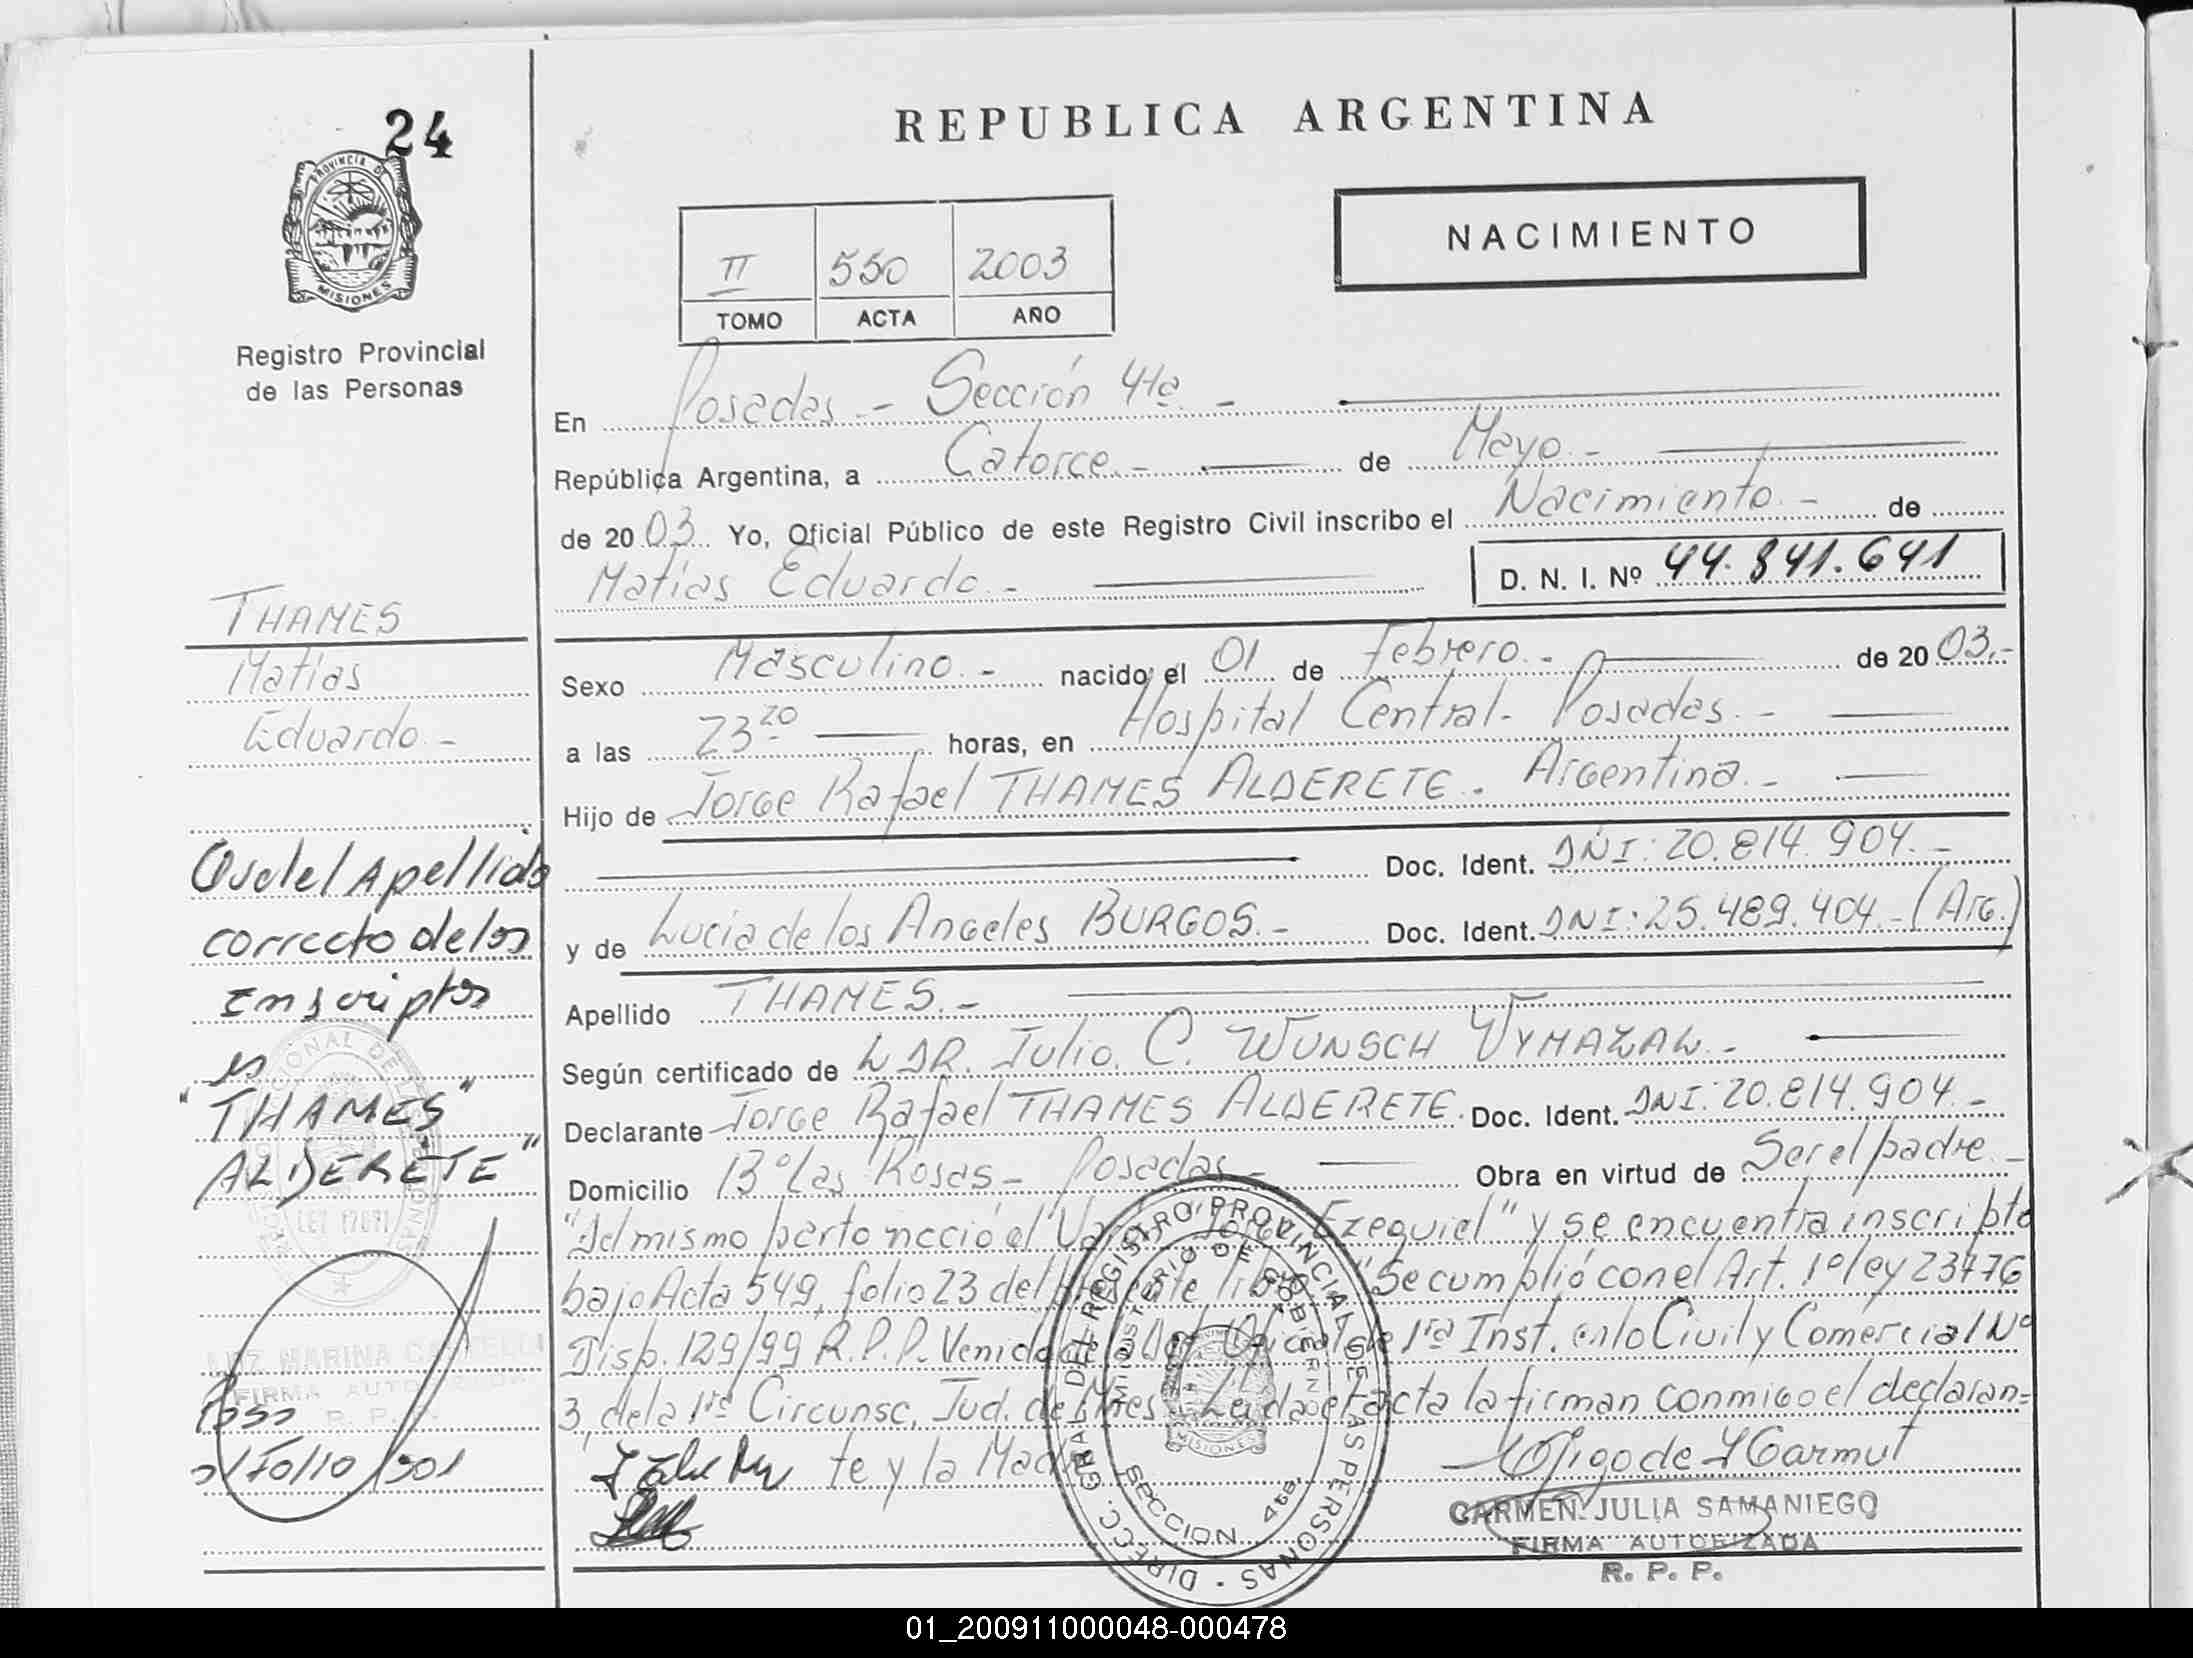 24
REPUBLICA ARGENTINA
PROVINCIA DE
MISIONES
Registro Provincial
de las Personas
NACIMIENTO
II 550 2003
TOMO ACTA AÑO
En Posadas - Sección 4ta -
República Argentina, a Catorce - de Mayo -
de 2003 Yo, Oficial Público de este Registro Civil inscribo el Nacimiento - de
Matías Eduardo - D. N. I. Nº 44.841.641
THAMES
Matías
Eduardo -
Sexo Masculino - nacido el 01 de Febrero - de 2003.-
a las 23 20 horas, en Hospital Central - Posadas -
Hijo de Jorge Rafael THAMES ALDERETE. Argentina -
Doc. Ident. DNI: 20.814.904 -
y de Lucía de los Angeles BURGOS - Doc. Ident. DNI: 25.489.404 - (Arg.)
Apellido THAMES -
Según certificado de DR. Julio C. WUNSCH VYMAZAL -
Declarante Jorge Rafael THAMES ALDERETE. Doc. Ident. DNI: 20.814.904 -
Domicilio Bº Las Rosas - Posadas - Obra en virtud de Ser el padre -
"Del mismo parto nació el Ezequiel" y se encuentra inscripto
bajo Acta 549, folio 23 del libro "Se cumplió con el Art. 1º ley 23776
Disp. 129/99 R.P.P. de 1ra Inst. en lo Civil y Comercial Nº
3 de la 1ra Circunsc. Jud. de Mnes. Leída el acta la firman conmigo el declaran=
te y la Madre
Apellido
correcto de los
Inscriptos
es
"THAMES
ALDERETE"
LEY 17671
LUZ MARINA CASTELLI
FIRMA AUTORIZADA
R. P. P.
Paso
al Folio 1501
DIRECC. GRAL. DEL REGISTRO PROVINCIAL DE LAS PERSONAS
MINISTERIO DE GOBIERNO
MISIONES
SECCION 4ta
CARMEN JULIA SAMANIEGO
FIRMA AUTORIZADA
R. P. P.
01_200911000048-000478